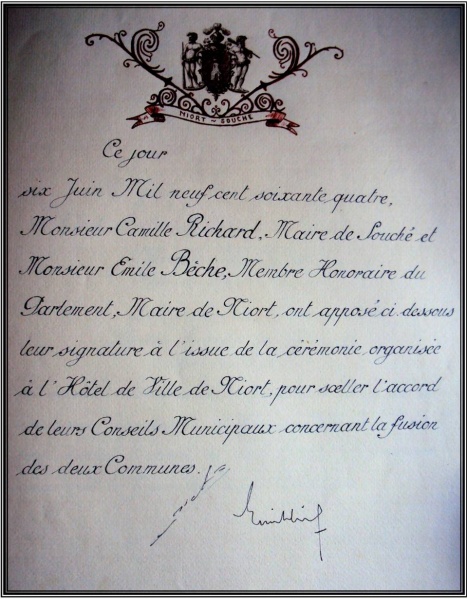 NIORT - SOUCHÉ
Ce jour
six Juin Mil neuf cent soixante quatre,
Monsieur Camille Richard, Maire de Souché et
Monsieur Emile Bêche, Membre Honoraire du
Parlement, Maire de Niort, ont apposé ci dessous
leur signature à l'issue de la cérémonie organisée
à l'Hôtel de Ville de Niort, pour sceller l'accord
de leurs Conseils Municipaux concernant la fusion
des deux Communes.